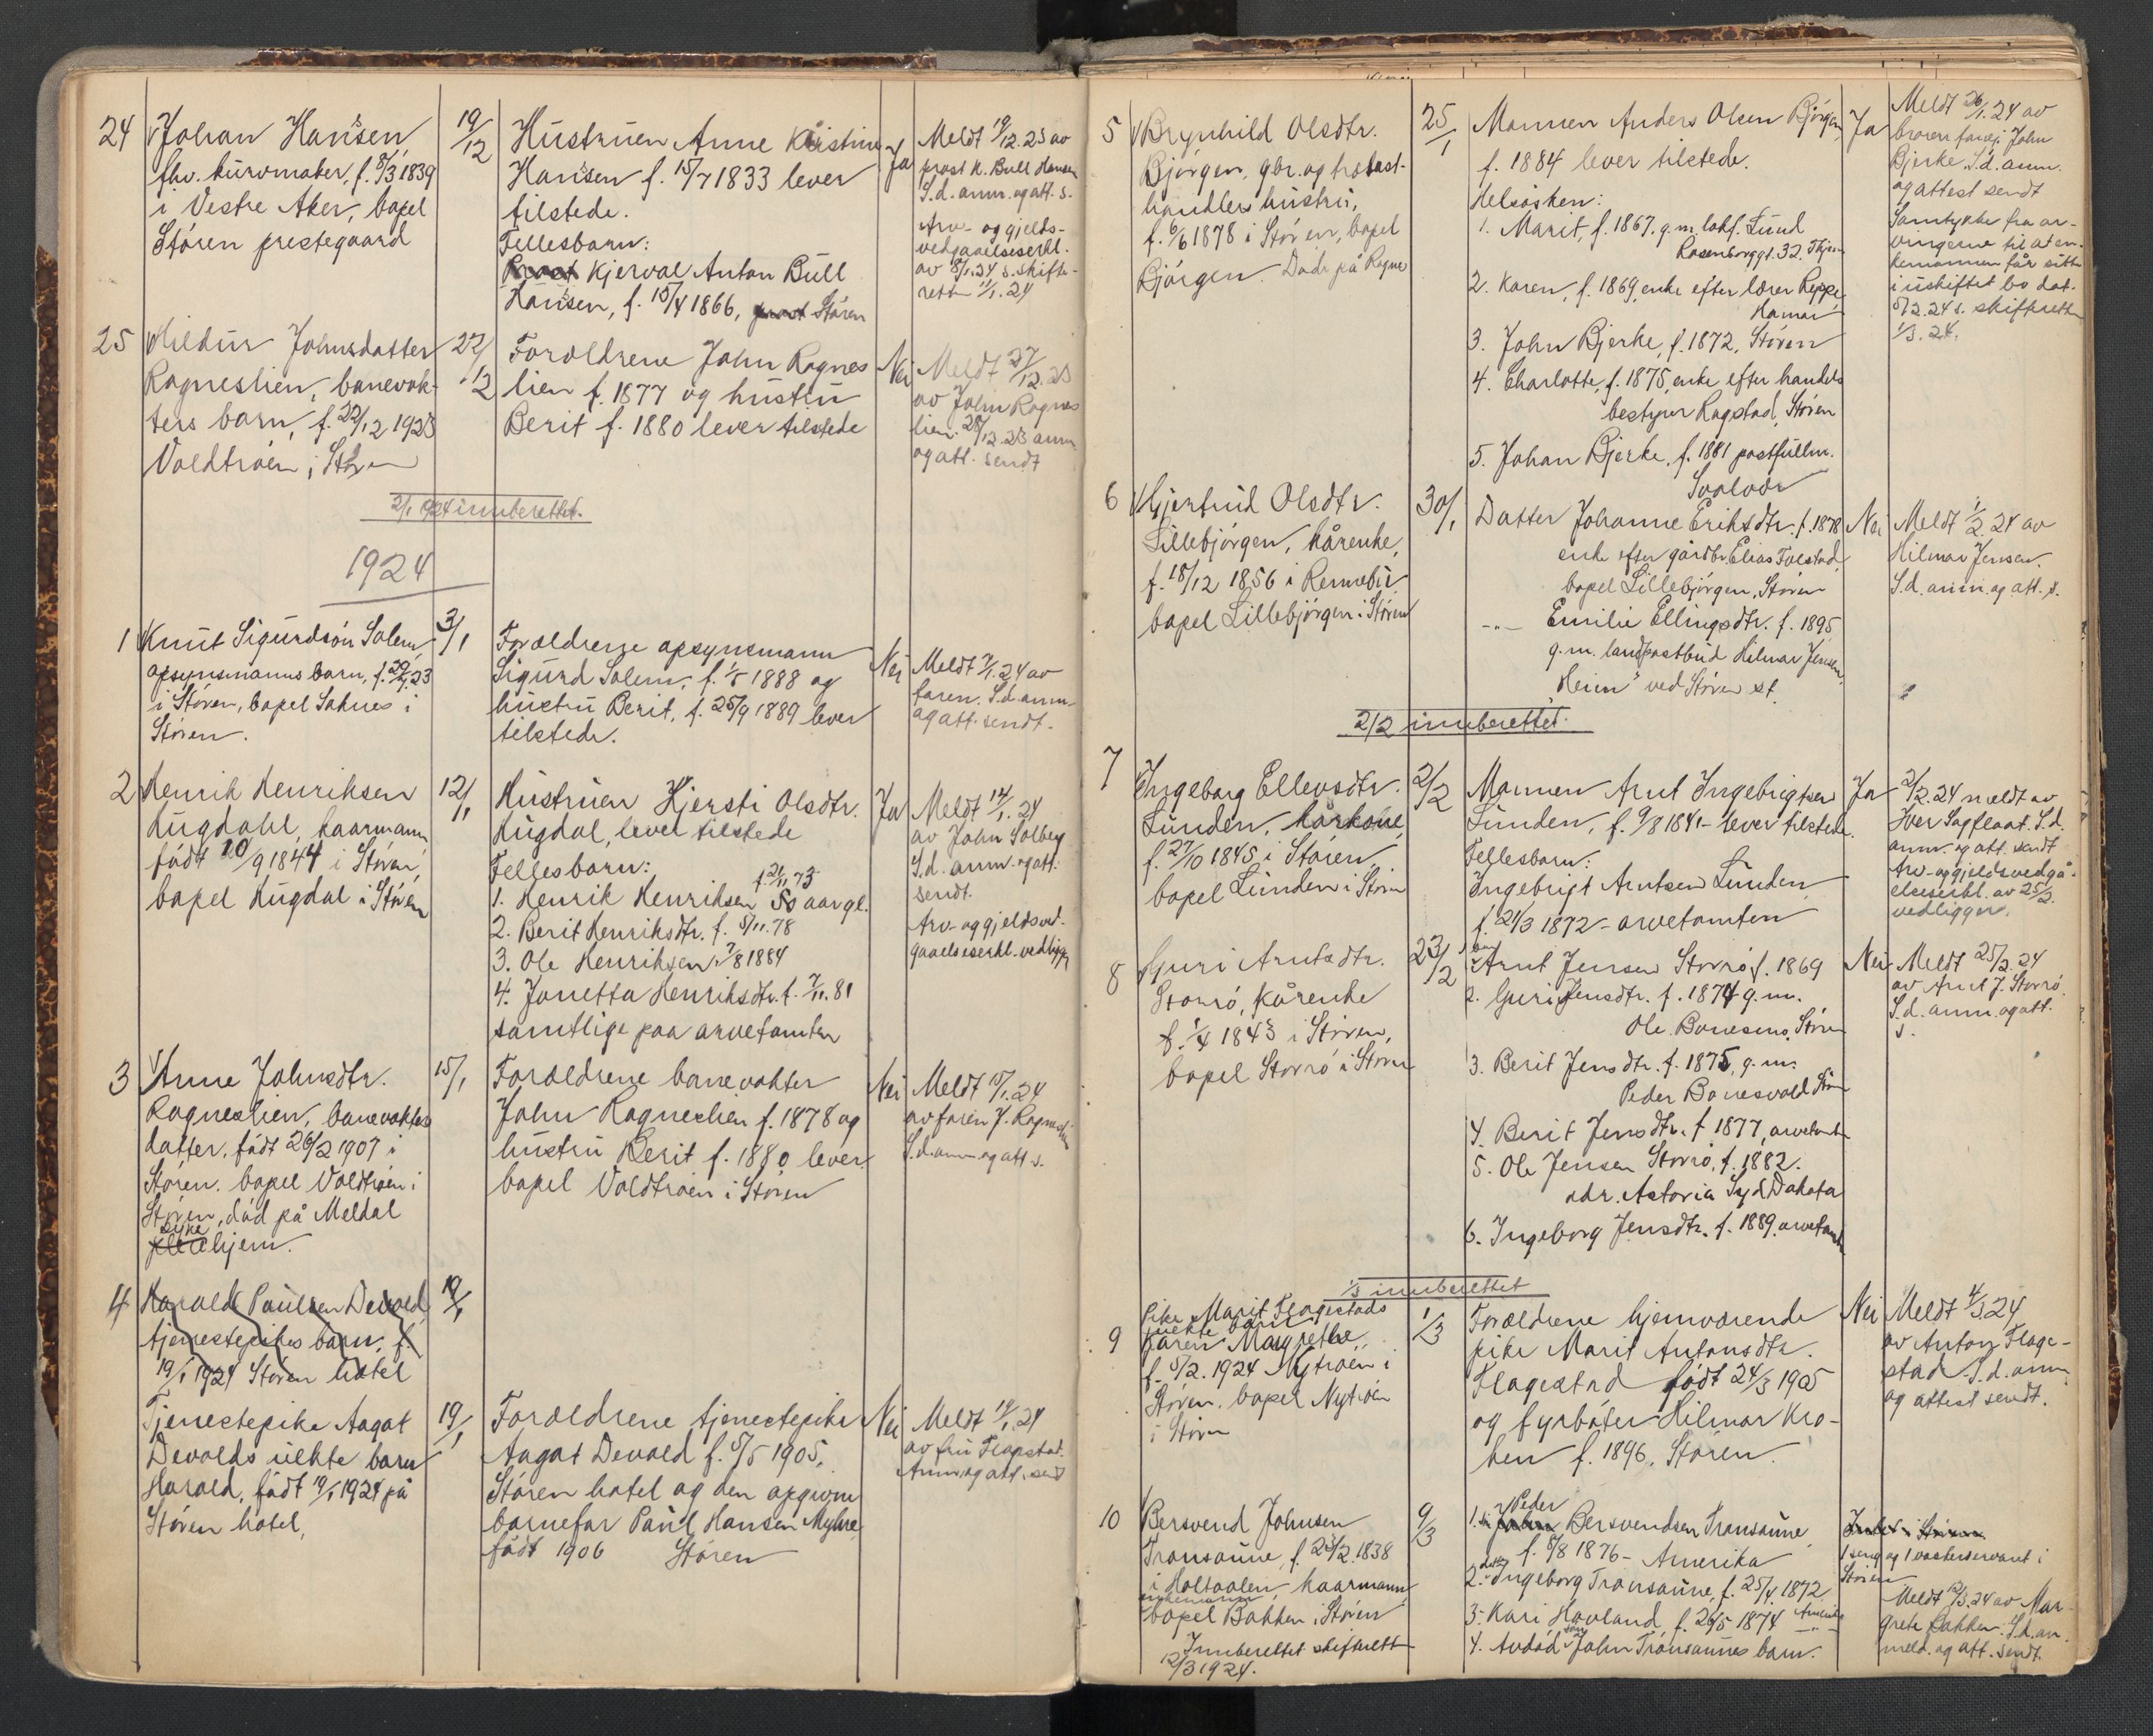 24
Johan Hansen,
fhv. kurvmaker, f. 8/3 1839
i Vestre Aker, bopel
Stören prestegaard
19/12
Hustruen Anne Kristine
Hansen f. 15/7 1833 lever
tilstede.
Fellesbarn:
Prost Kjerval Anton Bull
Hansen, f. 15/4 1866, prost Stören
Ja
Meldt 19/12.23 av
prost K. Bull Hansen
S.d. anm. og att. s.
Arv- og gjelds-
vedgaaelseserkl.
av 8/1.24 s. skifte-
retten 11/1.24
25
Hildur Johnsdatter
Ragneslien, banevok-
ters barn, f. 22/12 1923
Voldtröen i Stören
22/12
Foreldrene John Ragnes
lien f. 1877 og hustru
Berit f. 1880 lever tilstede
Nei
Meldt 27/12.23
av John Ragnes
lien. 28/12.23 anm
og att. sendt
2/1 1924 innberettet.
1924
1
Knut Sigurdsön Solem
opsynsmanns barn, f. 23
i Stören, bopel Soknes i
Stören.
3/1
Foreldrene opsynsmann
Sigurd Solem, f. 1888 og
hustru Berit, f. 25/9 1889 lever
tilstede.
Nei
Meldt 7/1.24 av
faren. S.d. anm.
og att. sendt.
2
Henrik Henriksen
Hugdahl, kaarmann
född 10/9 1844 i Stören,
bopel Hugdal i Stören
12/1
Hustruen Kjersti Olsdtr.
Hugdal, lever tilstede
Fellesbarn:
f. 21/11 73
1. Henrik Henriksen 50 aar gl.
2. Berit Henriksdtr. f. 5/11.78
3. Ole Henriksen 7/8 1884
4. Jonetta Henriksdtr. f. 7/11.81
samtlige paa arvetomten
Ja
Meldt 14/1.24
av John Solberg
S.d. anm. og att.
sendt.
Arv- og gjeldsved-
gaaelseserkl. vedligger
3
Anne Johnsdtr.
Ragneslien, banevokters
datter, född 26/2 1907 i
Stören. bopel Voldtröen i
Stören, död på Meldal
syke
pleiehjem.
15/1
Foreldrene banevokter
John Ragneslien f. 1878 og
hustru Berit f. 1880 lever.
bopel Voldtröen i Stören
Nei
Meldt 15/1.24
av faren J. Ragneslien
S.d. anm og att s.
4
Harald Paulsen Devold,
tjenestepikes barn, f.
19/1 1924 Stören hotel
19/1
Tjenestepike Aagat
Devolds uekte barn
Harald, född 19/1 1924 på
Stören hotel,
19/1
Foreldrene tjenestepike
Aagat Devold f. 5/5 1905,
Stören hotel og den opgivne
barnefar Paul Hansen Myhre,
född 1906 Stören
Nei
Meldt 19/1.24
av fru Flagstad.
Anm og att. send
5
Brynhild Olsdtr.
Björgen, gbr. og trelast-
handlers hustru,
f. 6/6 1878 i Stören, bopel
Björgen. Döde på Rogne
25/1
Mannen Anders Olsen Björgen,
f. 1884 lever tilstede.
Helsösken:
1. Marit, f. 1867, g.m. lokf. Lund
Rosenborggt. 32, Thjem
2. Karen, f. 1869, enke efter lærer Reppe,
Hamar
3. John Bjerke, f. 1872, Stören
4. Charlotte, f. 1875, enke efter handels
bestyrer Rogstad, Stören
5. Johan Bjerke, f. 1881 postfullm.
Svolvær
Ja
Meldt 26/1.24 av
broren forvj. John
Bjerke. S.d. anm.
og attest sendt
Samtykke fra ar-
vingerne til at en-
kemannen får sitte
i uskiftet bo dat.
5/2.24 s. skifteretten
1/3.24.
6
Gjertrud Olsdtr.
Lillebjörgen, kårenke,
f. 18/12 1856 i Rennebu
bopel Lillebjörgen i Stören
30/1
Datter Johanne Eriksdtr. f. 1878
enke efter gårdbr. Elias Folstad,
bopel Lillebjörgen, Stören
-"- Emilie Ellingsdtr. f. 1895
g.m. landpostbud Hilmar Jensen,
"Heim" ved Stören st.
Nei
Meldt 1/2.24 av
Hilmar Jensen.
S.d. anm. og att. s.
2/2 innberettet.
7
Ingeborg Ellevsdtr.
Lunden, kårkone,
f. 27/10 1845 i Stören,
bopel Lunden i Stören
2/2
Mannen Arnt Ingebrigtsen
Lunden, f. 9/8 1841 - lever tilstede.
Fellesbarn:
Ingebrigt Arntsen Lunden
f. 21/3 1872 - arvetomten
Ja
2/2.24 meldt av
Iver Sagflaat. S.d.
anm. og att. sendt
Arv- og gjeldsvedgå-
elseserkl. av 25/2.
vedligger.
8
Guri Arntsdtr.
Storrö, kårenke
f. 1/4 1843 i Stören,
bopel Storrö i Stören
23/2
1. Arnt Jensen Storrö f. 1869
2. Guri Jensdtr. f. 1874 g.m.
Ole Bonesmo, Stören
3. Berit Jensdtr. f. 1875, g.m.
Peder Bonesvold Stören
4. Berit Jensdtr. f 1877, arvetomten
5. Ole Jensen Storrö, f. 1882.
adr. Astoria Syd Dakota
6. Ingeborg Jensdtr. f. 1889. arvetomten
Nei
Meldt 25/2.24
av Arnt J. Storrö.
S.d. anm. og att.
s.
1/3 innberettet
9
Pike Marit Flagestads
uekte barn
Karen Margrethe
f. 5/2. 1924 Nytröen i
Stören. bopel Nytröen
i Stören
1/3
Foreldrene hjemværende
pike Marit Antonsdtr.
Flagestad född 24/3 1905
og fyrböter Hilmar Kro-
ken f. 1896, Stören.
Nei
Meldt 4/3.24
av Anton Flage-
stad. S.d. anm.
og attest sendt.
10
Bersvend Johnsen
Tronsaune, f. 23/2.1838
i Holtaalen, kaarmann,
enkemann,
bopel Bakken i Stören
Innberettet skifterett
12/3 1924.
9/3
Peder
1. sön John Bersvendsen Tronsaune
f. 8/8 1876 - Amerika
2. dtr. Ingeborg Tronsaune, f. 25/4 1872
3. Kari Hovland f. 26/5 1874 Amerika
sön
4. Avdöd John Tronsaunes barn.
Intet i Stören
1 seng og 1 vaskeservant i
Stören
Meldt 12/3.24 av Mar-
grete Bakken. S.d. an-
meld. og att. sendt.